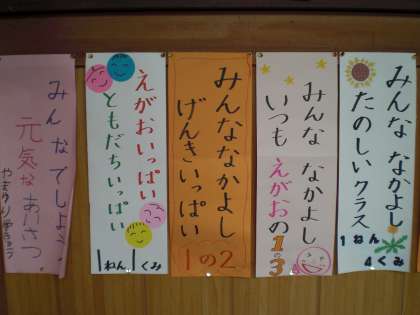 みんなでしよう
元気なあいさつ
やまゆり学きゅう
えがおいっぱい
ともだちいっぱい
1ねん1くみ
みんななかよし
げんきいっぱい
1の2
みんな なかよし
いつも えがおの1の3
みんな なかよし
たのしいクラス
1ねん
4くみ